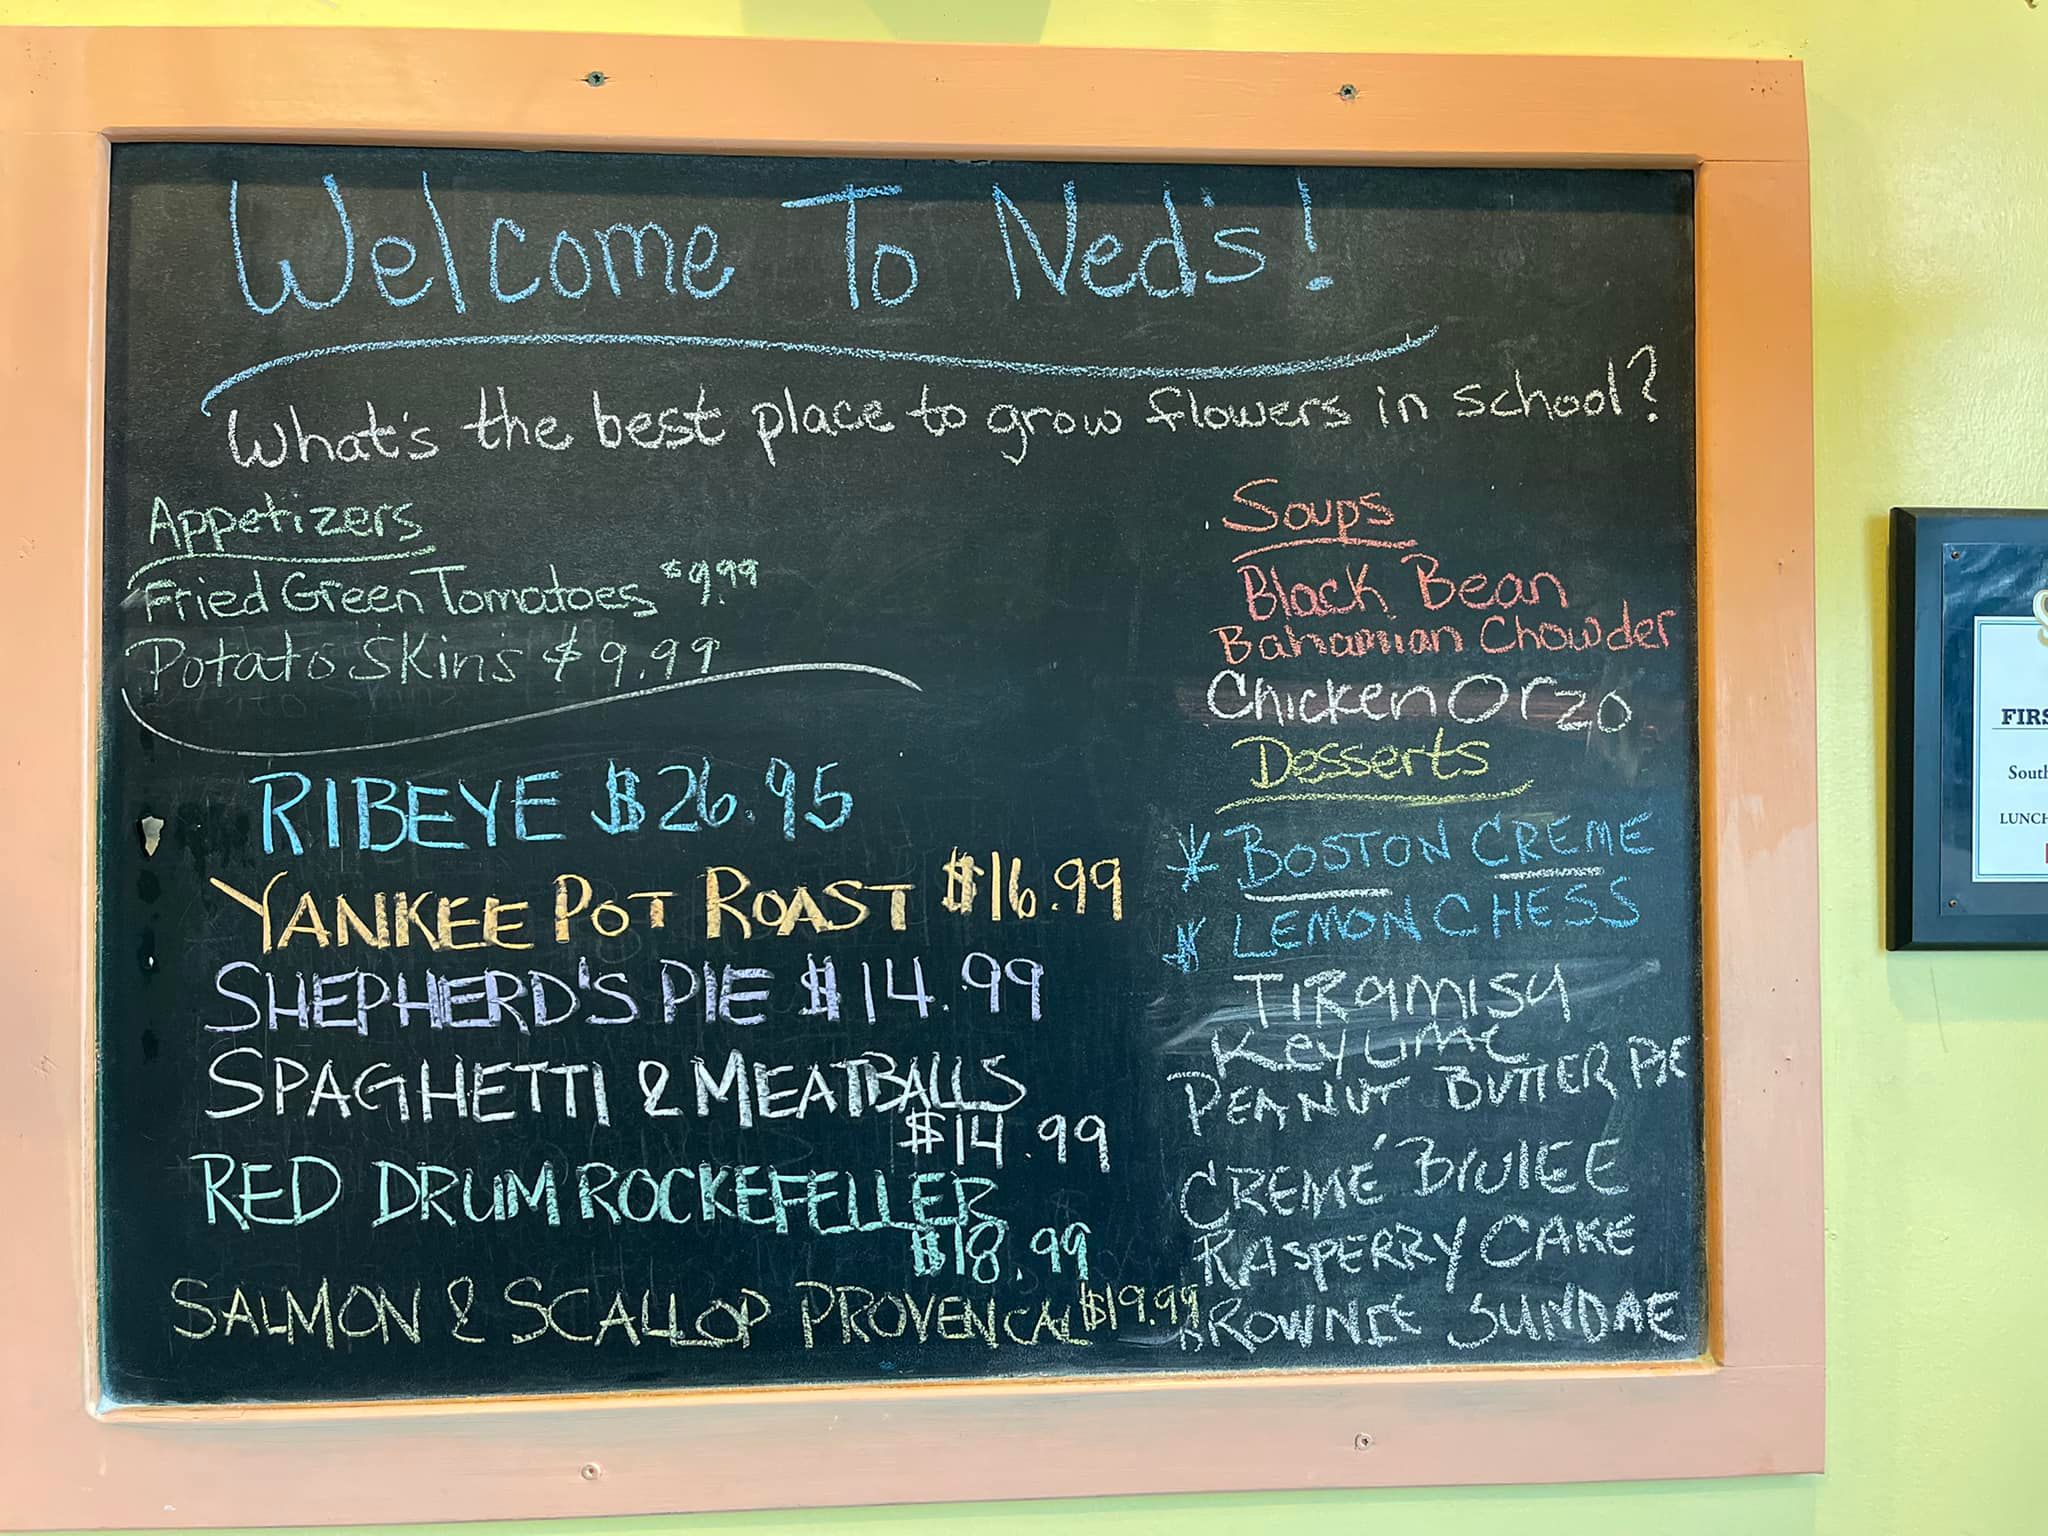 Welcome To Ned's!
What's the best place to grow flowers in school?
Appetizers
Fried Green Tomatoes $9.99
Potato Skins $9.99
RIBEYE $26.95
YANKEE POT ROAST $16.99
SHEPHERD'S PIE $14.99
SPAGHETTI & MEATBALLS
$14.99
RED DRUM ROCKEFELLER
$18.99
SALMON & SCALLOP PROVENCAL $19.99
Soups
Black Bean
Bahamian Chowder
Chicken Orzo
Desserts
* BOSTON CREME
* LEMON CHESS
TIRAMISU
Key Lime
PEANUT BUTTER PIE
CREMÉ BRULEE
RASPERRY CAKE
BROWNIE SUNDAE
FIRS
South
LUNCH